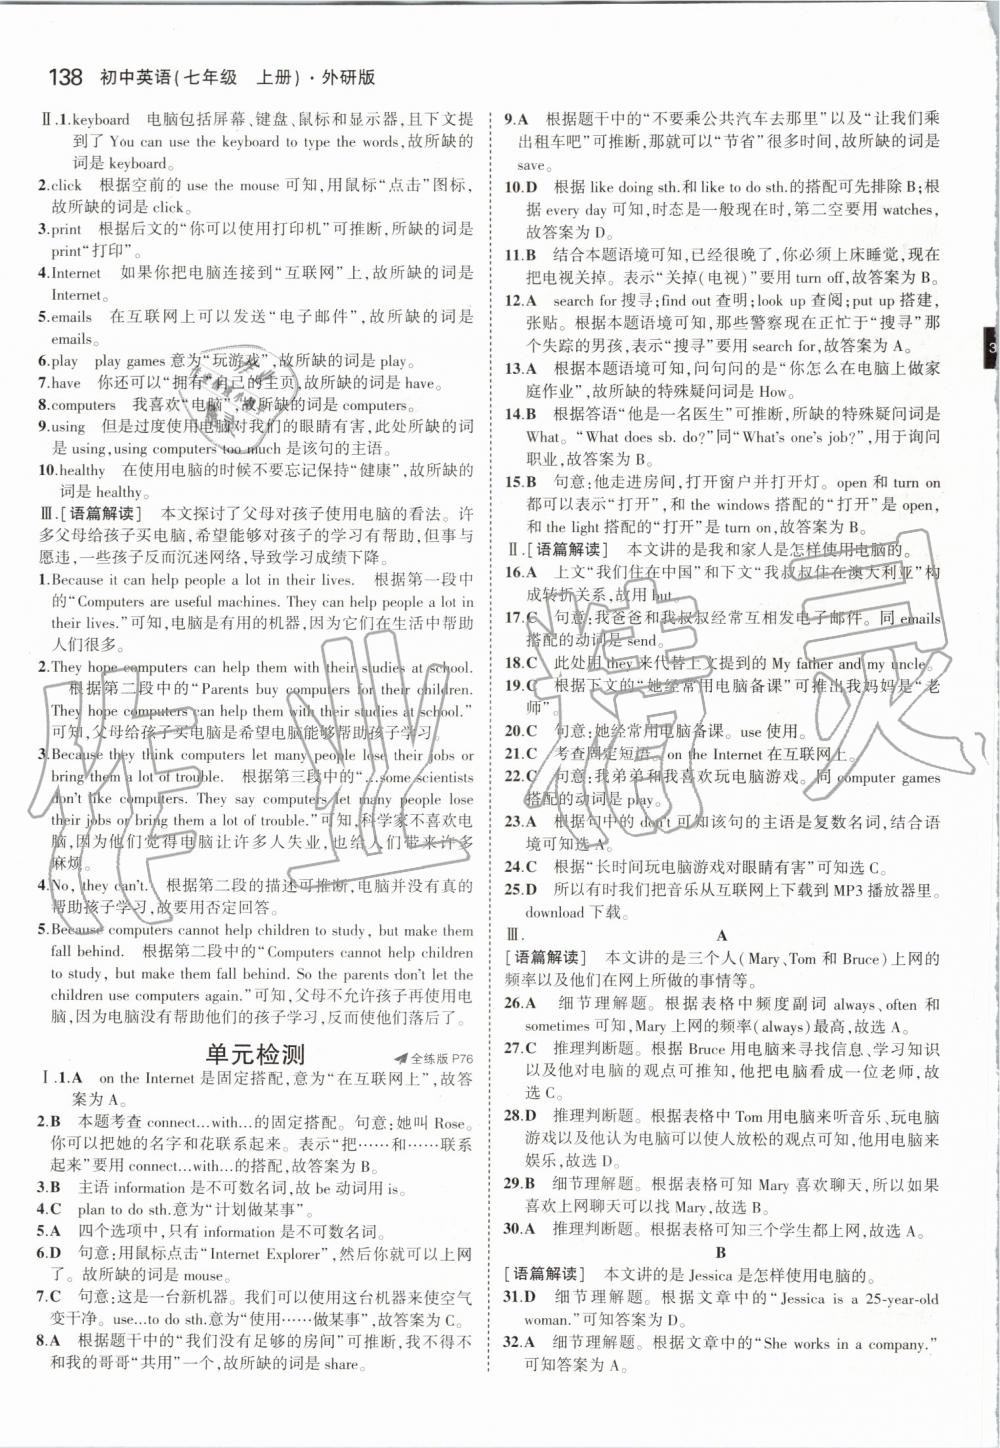 138 初中英语(七年级 上册)·外研版
Ⅱ.1.keyboard 电脑包括屏幕、键盘、鼠标和显示器,且下文提
到了You can use the keyboard to type the words,故所缺的
词是 keyboard。
2.click 根据空前的 use the mouse 可知,用鼠标“点击”图标,
故所缺的词是 click。
3.print 根据后文的“你可以使用打印机”可推断,所缺的词是
print“打印”。
4.Internet 如果你把电脑连接到“互联网”上,故所缺的词是
Internet。
5.emails 在互联网上可以发送“电子邮件”,故所缺的词是
emails。
6.play play games 意为“玩游戏”,故所缺的词是 play。
7.have 你还可以“拥有”自己的主页,故所缺的词是 have。
8.computers 我喜欢“电脑”,故所缺的词是 computers。
9.using 但是过度使用电脑对我们的眼睛有害,此处所缺的词
是 using,using computers too much 是该句的主语。
10.healthy 在使用电脑的时候不要忘记保持“健康”,故所缺的
词是 healthy。
Ⅲ.[语篇解读] 本文探讨了父母对孩子使用电脑的看法。许
多父母给孩子买电脑,希望能够对孩子的学习有帮助,但事与
愿违,一些孩子反而沉迷网络,导致学习成绩下降。
1.Because it can help people a lot in their lives. 根据第一段中
的“Computers are useful machines. They can help people a lot
in their lives.”可知,电脑是有用的机器,它们在生活中帮助
人们很多。
2.They hope computers can help them with their studies at school.
根据第二段中的“Parents buy computers for their children.
They hope computers can help them with their studies at school.”
可知,父母给孩子买电脑是希望电脑能够帮助孩子学习。
3.Because they think computers let many people lose their jobs or
bring them a lot of trouble. 根据第三段中的“...some scientists
don't like computers. They think computers let many people lose
their jobs or bring them a lot of trouble.”可知,科学家不喜欢电
脑,因为他们认为电脑让许多人失业,或给人们带来许多
麻烦。
4.No, they can't. 根据第二段的描述可推断,电脑并不能真的
帮助孩子学习,故要用否定回答。
5.Because computers cannot help children to study, but make them
fall behind. 根据第二段中的“Computers cannot help children
to study, but make them fall behind. So the parents don't let the
children use computers again.”可知,父母不允许孩子再使用电
脑,因为电脑没有帮助他们的孩子学习,反而使他们落后了。
单元检测 全练版 P76
Ⅰ.1.A on the Internet 是固定搭配,意为“在互联网上”,故答
案为 A。
2.B 本题考查 connect...with...的固定搭配。句意:她叫 Rose。
你可以把她的名字和花联系起来。表示“把……和……联系
起来”要用 connect...with...的搭配,故答案为 B。
3.B 主语 information 是不可数名词,故 be 动词用 is。
4.C plan to do sth.意为“计划做某事”。
5.A 四个选项中,只有 information 是不可数名词。
6.D 句意:用鼠标点击“Internet Explorer”,然后你就可以上网
了。故所缺的词是 mouse。
7.C 句意:这是一台新机器。我们可以使用这台机器来使空气
变干净。use...to do sth.意为“使用……做某事”,故答案为 C。
8.A 根据题干中的“我们没有足够的房间”可推断,我不得不
和我的哥哥“共用”一个,故所缺的词是 share。
9.A 根据题干中的“不要乘公共汽车去那里”以及“让我们乘
出租车吧”可推断,这可以“节省”很多时间,故所缺的词是
save。
10.D 根据 like doing sth.和 like to do sth.的搭配可先排除 B;根
据 every day 可知,时态是一般现在时,第二空要用 watches,
故答案为 D。
11.B 结合本题语境可知,已经很晚了,你应该上床睡觉,现在
把电视关掉。表示“关掉(电视)”要用 turn off,故答案为 B。
12.A search for 搜寻;find out 查明;look up 查阅;put up 搭建,
张贴。根据本题语境可知,那些警察现在正忙于“搜寻”那
个失踪的男孩,表示“搜寻”要用 search for,故答案为 A。
13.A 根据本题语境可知,问句问的是“你怎么在电脑上做家
庭作业”,故所缺的特殊疑问词是 How。
14.B 根据答语“他是一名医生”可推断,所缺的特殊疑问词是
What。“What does sb. do?”同“What's one's job?”,用于询问
职业,故答案为 B。
15.B 句意:他走进房间,打开窗户并打开灯。open 和 turn on
都可以表示“打开”,和 the windows 搭配的“打开”是 open,
和 the light 搭配的“打开”是 turn on,故答案为 B。
Ⅱ.[语篇解读] 本文讲的是我和家人是怎样使用电脑的。
16.A 上文“我们住在中国”和下文“我叔叔住在澳大利亚”构
成转折关系,故用 but。
17.C 句意:我爸爸和我叔叔经常互相发电子邮件。同 emails
搭配的动词是 send。
18.C 此处用 they 来代替上文提到的 My father and my uncle。
19.C 根据下文的“她经常用电脑备课”可推出我妈妈是“老
师”。
20.C 句意:她经常用电脑备课。use 使用。
21.C 考查固定短语。on the Internet 在互联网上。
22.C 句意:我弟弟和我喜欢玩电脑游戏。同 computer games
搭配的动词是 play。
23.A 根据句中的 don't 可知该句的主语是复数名词,结合语
境可知选 A。
24.C 根据“长时间玩电脑游戏对眼睛有害”可知选 C。
25.D 所以有时我们把音乐从互联网上下载到 MP3 播放器里。
download 下载。
Ⅲ. A
[语篇解读] 本文讲的是三个人(Mary、Tom 和 Bruce)上网的
频率以及他们在网上所做的事情等。
26.A 细节理解题。根据表格中频度副词 always、often 和
sometimes 可知,Mary 上网的频率(always)最高,故选 A。
27.C 推理判断题。根据 Bruce 用电脑来查找信息、学习知识
以及他对电脑的观点可推断,他最可能成为一位老师,故
选 C。
28.D 推理判断题。根据表格中 Tom 用电脑来听音乐、玩电脑
游戏以及他认为电脑可以使人放松的观点可知,他用电脑来
娱乐,故选 D。
29.B 细节理解题。根据表格可知 Mary 喜欢聊天,所以如果
喜欢上网聊天可以找 Mary,故选 B。
30.A 推理判断题。根据表格可知三个学生都上网,故选 A。
B
[语篇解读] 本文讲的是 Jessica 是怎样使用电脑的。
31.D 细节理解题。根据文章中的“Jessica is a 25-year-old
woman.”可知答案为 D。
32.A 细节理解题。根据文章中的“She works in a company.”
可知答案为 A。
作业精灵
3